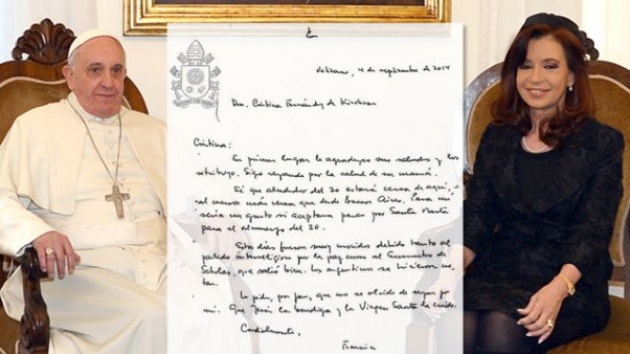 Vaticano, 4 de septiembre de 2014
Dra. Cristina Fernández de Kirchner
Cristina:
En primer lugar le agradezco sus saludos y los
retribuyo. Sigo rezando por la salud de su mamá.
Sé que alrededor del 20 estará cerca de aquí,
al menos más cerca que desde Buenos Aires. Para mí
sería un gusto si aceptara pasar por Santa Marta
para el almuerzo del 20.
Estos días fueron muy movidos debido tanto al
partido interreligioso por la paz como al Encuentro de
Scholas, que salió bien. Los argentinos se hicieron no-
tar.
Le pido, por favor, que no se olvide de rezar por
mí. Que Jesús la bendiga y la Virgen Santa la cuide.
Cordialmente,
Francisco